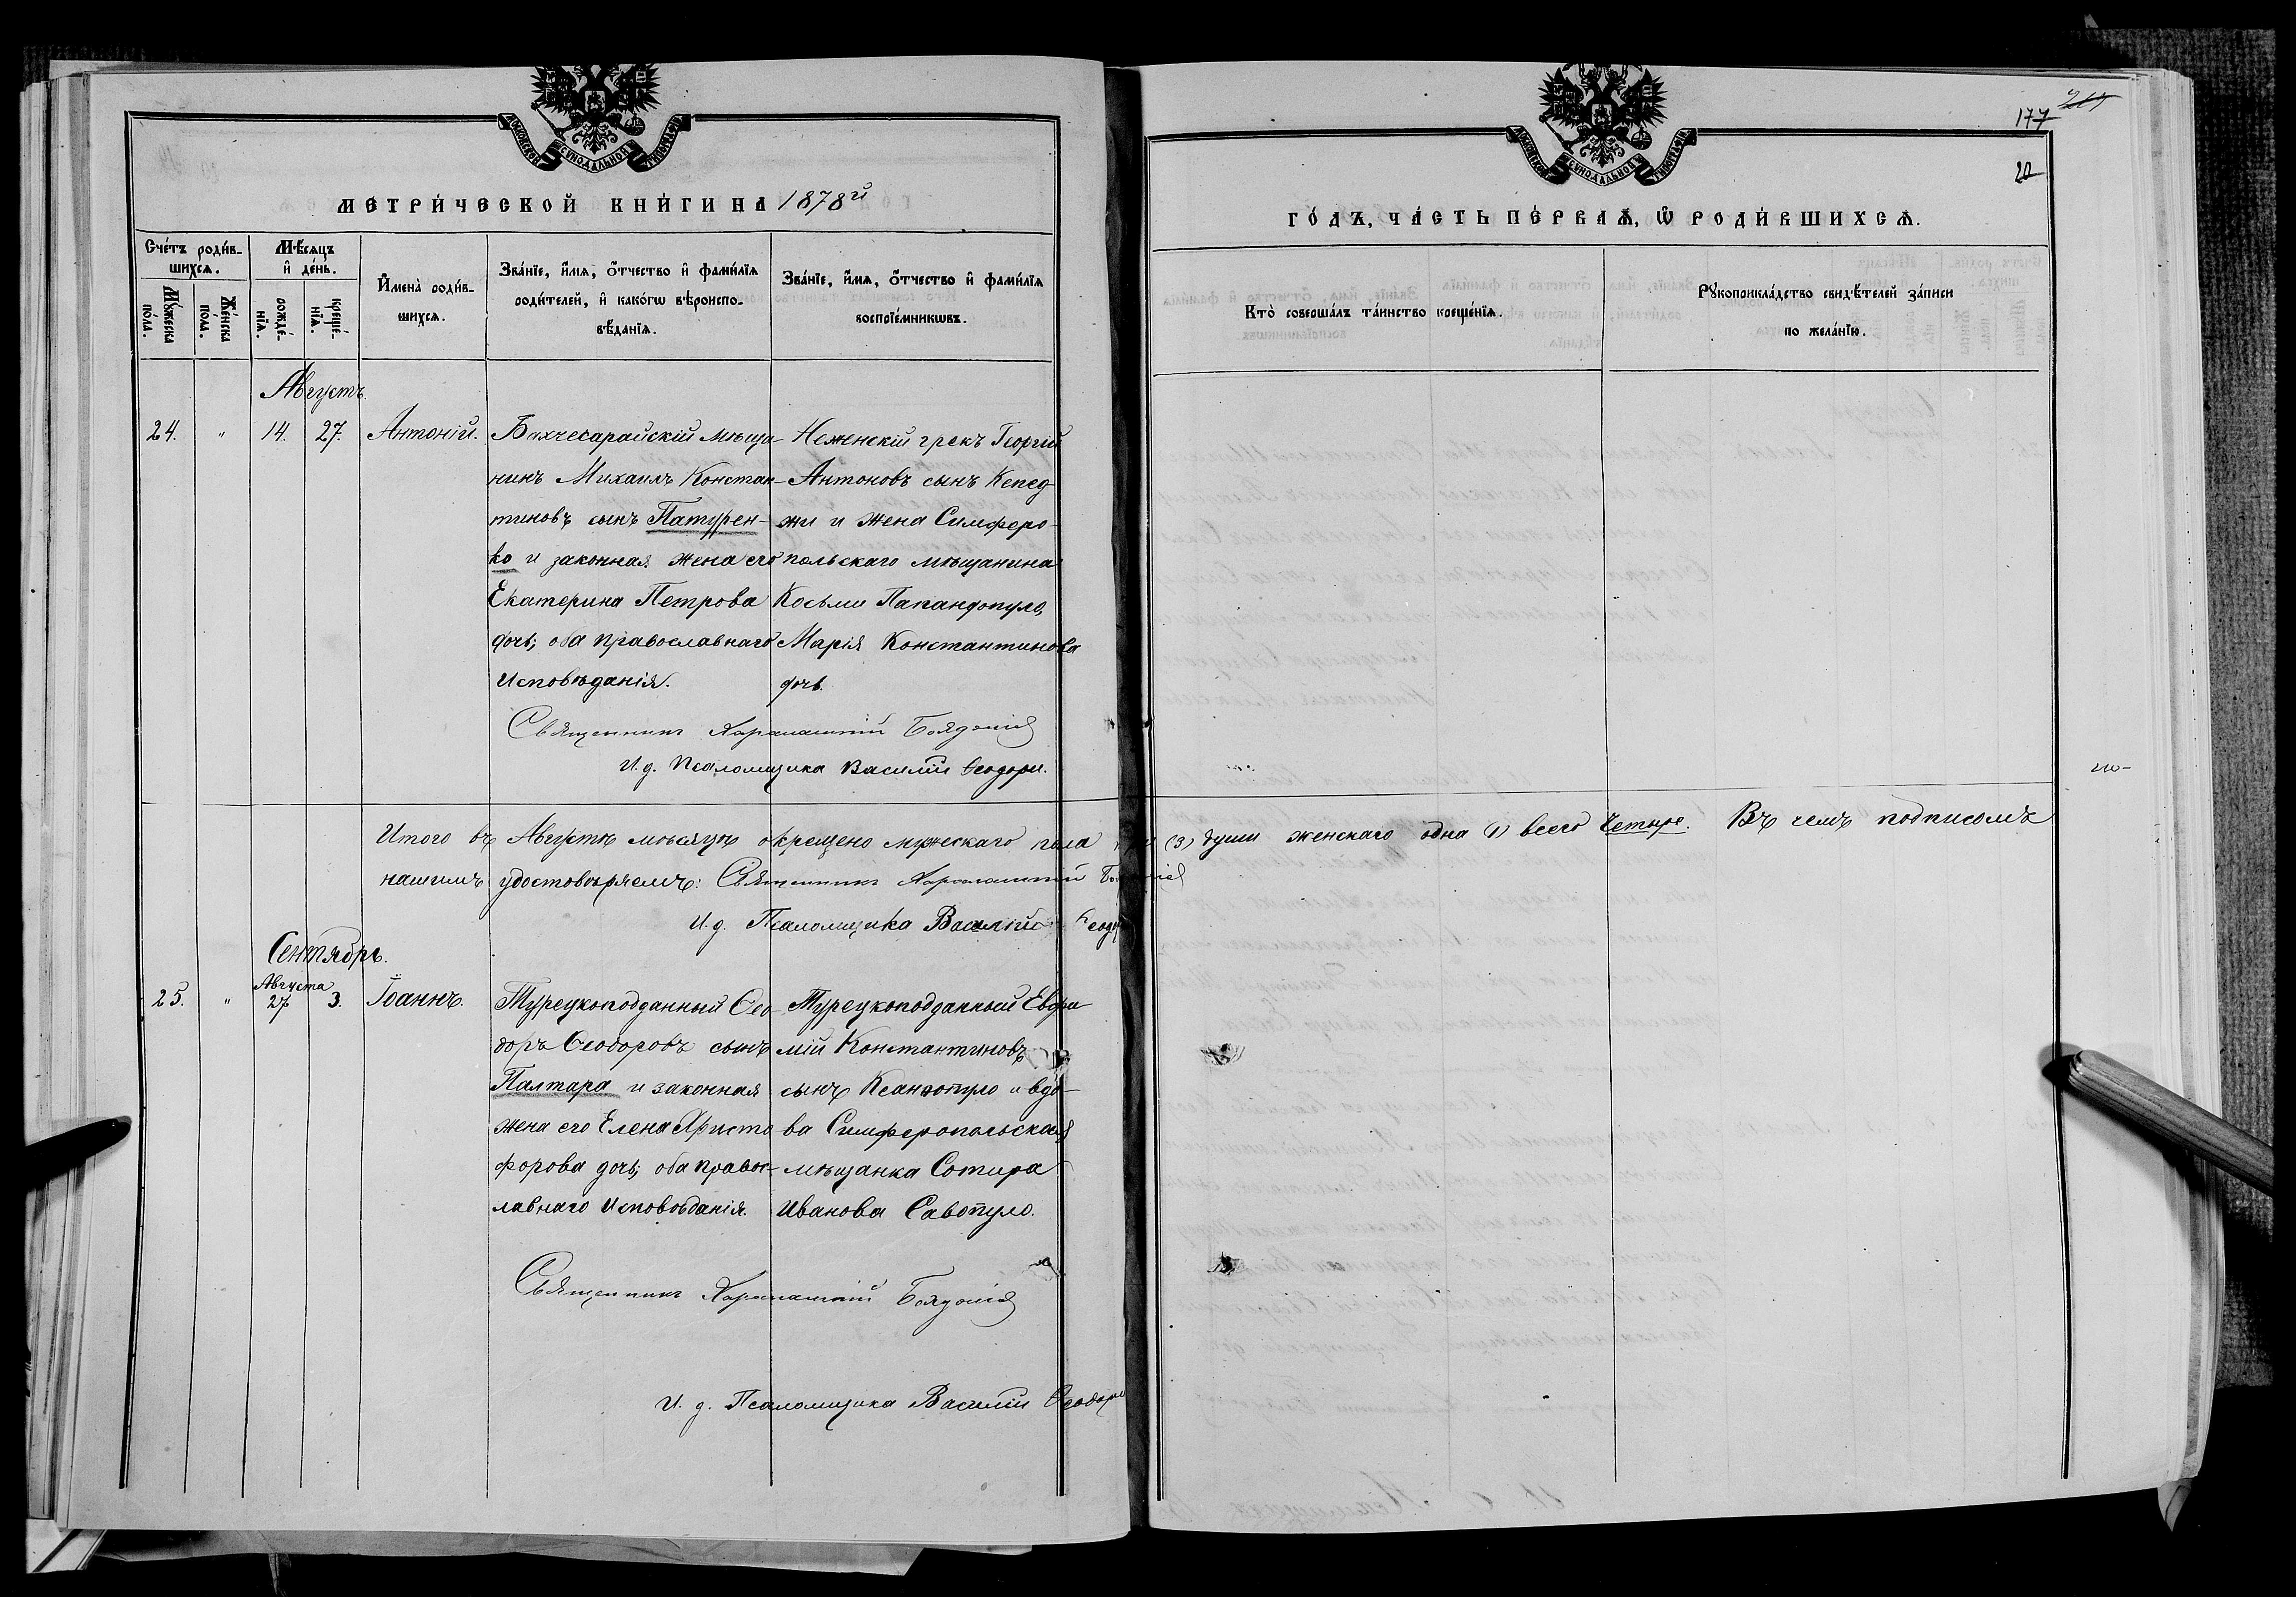 МОСКОВСКОЙ СѴНОДАЛЬНОЙ ТИПОГРАФІИ
МЕТРИ́ЧЕСКОЙ КНИ́ГИ НА 1878й
Сче́тъ роди́в-
шихсѧ.
Мѣ́сѧцъ
и҆ де́нь.
Му́жеска
по́ла.
Же́нска
по́ла.
рожде́-
нїѧ.
креще́-
нїѧ.
И҆мена̀ роди́в-
шихсѧ.
Зва́нїе, и҆́мѧ, ѻ҆́тчество и҆ фами́лїѧ
роди́телей, и҆ како́гѡ вѣроиспо-
вѣ́данїѧ.
Зва́нїе, и҆́мѧ, ѻ҆́тчество и҆ фами́лїѧ
воспрїе́мникѡвъ.
Августъ.
24. " 14. 27. Антоній.
Бахчесарайскій мѣща-
нинъ Михаилъ Констан-
тиновъ сынъ Патурен-
ко и законная жена его
Екатерина Петрова
дочь; оба православнаго
Исповѣданія.
Неженскій грекъ Георгій
Антоновъ сынъ Кепед
жи и жена Симферо-
польскаго мѣщанина
Косьмы Папандопуло,
Марія Константинова
дочь.
Священникъ Харалампій
И. д. Псаломщика Василій Ѳеодори.
Итого въ Августѣ мѣсяцѣ окрещено мужескаго пола (3) души женскаго одна (1) всего четыре. Въ чемъ подписомъ
нашимъ удостовѣряемъ: Священникъ Харалампій
И. д. Псаломщика Василій
Сентябрь.
Августа
25. " 27 3. Іоаннъ.
Турецкоподданный Ѳео-
доръ Ѳеодоровъ сынъ
Палтара и законная
жена его Елена Христо
форова дочь; оба правос-
лавнаго Исповѣданія.
Турецкоподданный Евфи
мій Константиновъ
сынъ Ксанопуло и вдо-
ва Симферопольская
мѣщанка Сотира
Иванова Савопуло.
Священникъ Харалампій
И. д. Псаломщика Василій Ѳеодори
МОСКОВСКОЙ СѴНОДАЛЬНОЙ ТИПОГРАФІИ
177
20
ГО́ДЪ, ЧА́СТЬ ПЕ́РВАѦ, Ѡ҆ РОДИ́ВШИХСѦ.
Кто̀ соверша́лъ та́инство креще́нїѧ.
Рꙋкоприкла́дство свидѣ́телей за́писи
по жела́нїю.